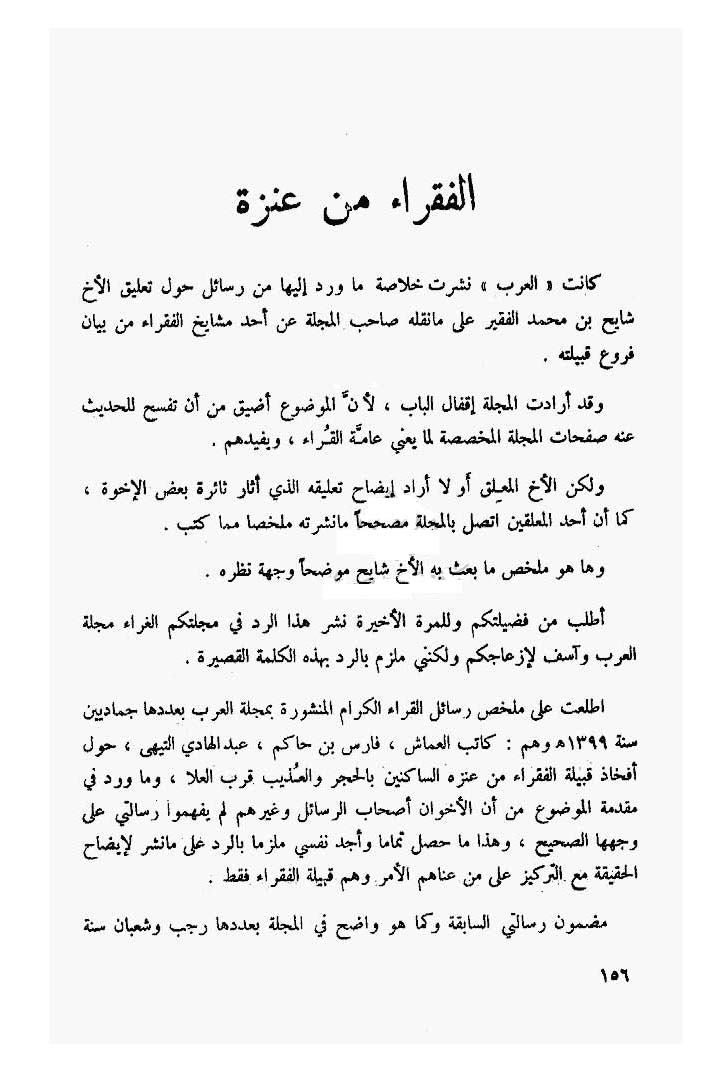 الفقراء من عنزة
كانت « العرب » نشرت خلاصة ما ورد إليها من رسائل حول تعليق الأخ
شايح بن محمد الفقير على مانقله صاحب المجلة عن أحد مشايخ الفقراء من بيان
فروع قبيلته .
وقد أرادت المجلة إقفال الباب ، لأنَّ الموضوع أضيق من أن تفسح للحديث
عنه صفحات المجلة المخصصة لما يعني عامَّة القُراء ، ويفيدهم .
ولكن الأخ المعـلق أولا أراد إيضاح تعليقه الذي أثار ثائرة بعض الإخوة ،
كما أن أحد المعلقين اتصل بالمجلة مصححاً مانشرته ملخصا مما كتب .
وها هو ملخص ما بعث به الأخ شايح موضحاً وجهة نظره .
أطلب من فضيلتكم وللمرة الأخيرة نشر هذا الرد في مجلتكم الغراء مجلة
العرب وآسف لإزعاجكم ولكنني ملزم بالرد بهذه الكلمة القصيرة .
اطلعت على ملخص رسائل القراء الكرام المنشورة بمجلة العرب بعددها جماديين
سنة ١٣٩٩ه وهم : كاتب العماش ، فارس بن حاكم ، عبدالهادي التيهى ، حول
أفخاذ قبيلة الفقراء من عنزه الساكنين بالحجر والعُذيب قرب العلا ، وما ورد في
مقدمة الموضوع من أن الأخوان أصحاب الرسائل وغيرهم لم يفهموا رسالتي على
وجهها الصحيح ، وهذا ما حصل تماما وأجد نفسي ملزما بالرد على مانشر لإيضاح
الحقيقة مع التركيز على من عناهم الأمر وهم قبيلة الفقراء فقط .
مضمون رسالتي السابقة وكما هو واضح في المجلة بعددها رجب وشعبان سنة
١٥٦